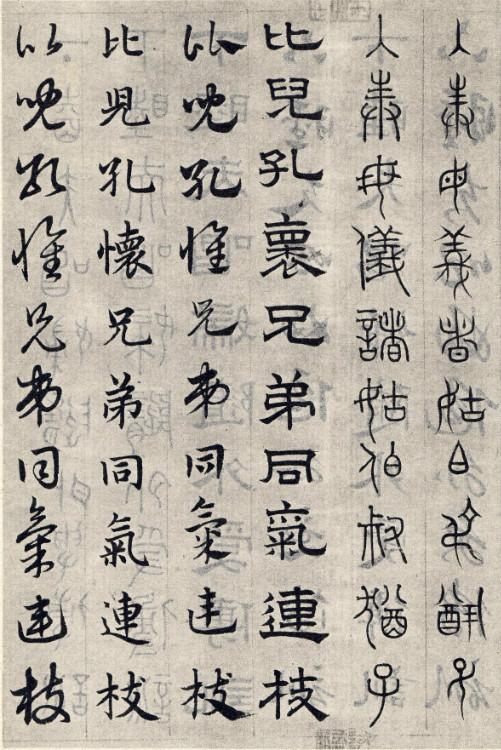 入奉母義者姑白叔猷子
入奉母儀諸姑伯叔猶子
比兒孔褱兄弟同氣連枝
比兒孔懷兄弟同氣連枝
比兒孔懷兄弟同氣連枝
比兒孔懷兄弟同氣連枝